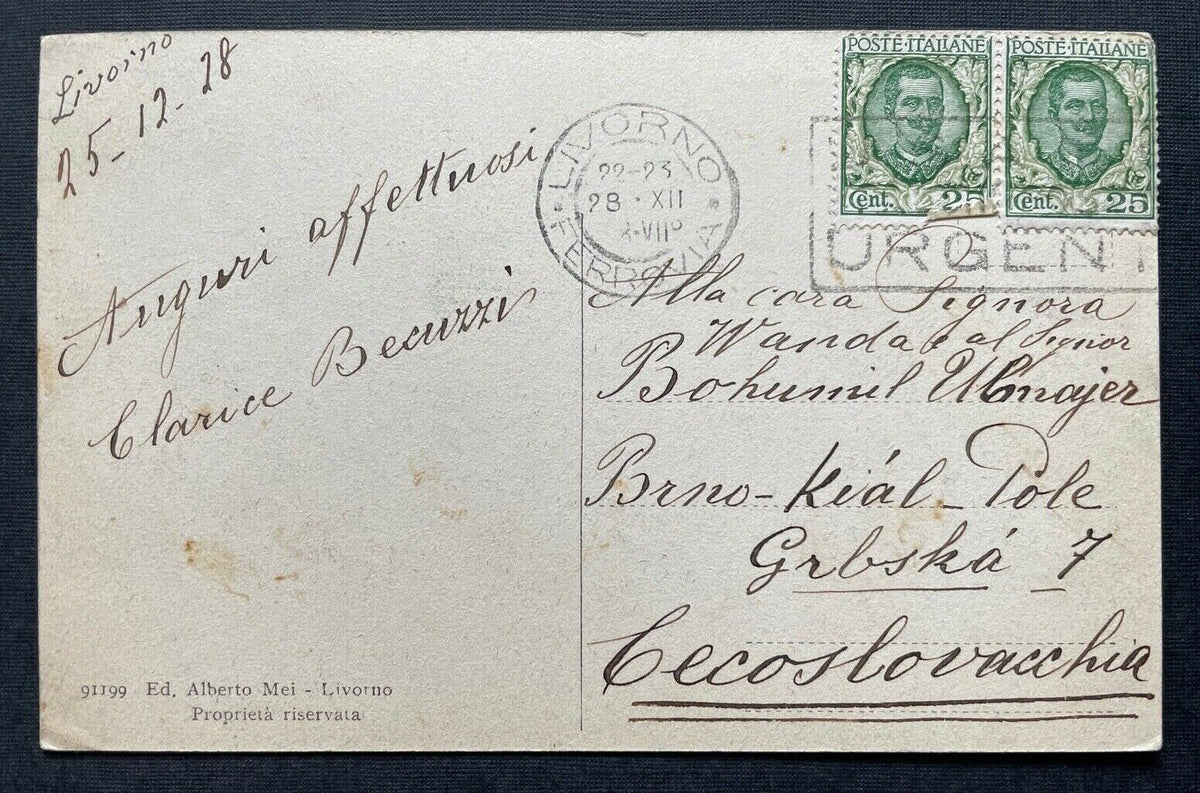 Livorno
25-12-28
Auguri affettuosi
Clarice Becuzzi
91199 Ed. Alberto Mei - Livorno
Proprietà riservata
LIVORNO
22-23
28 · XII
FERROVIA
POSTE·ITALIANE POSTE·ITALIANE
Cent. 25 Cent. 25
URGENT
Alla cara Signora
Wanda e al Signor
Bohumil
Brno-Kiál-Pole
Grbská 7
Cecoslovacchia